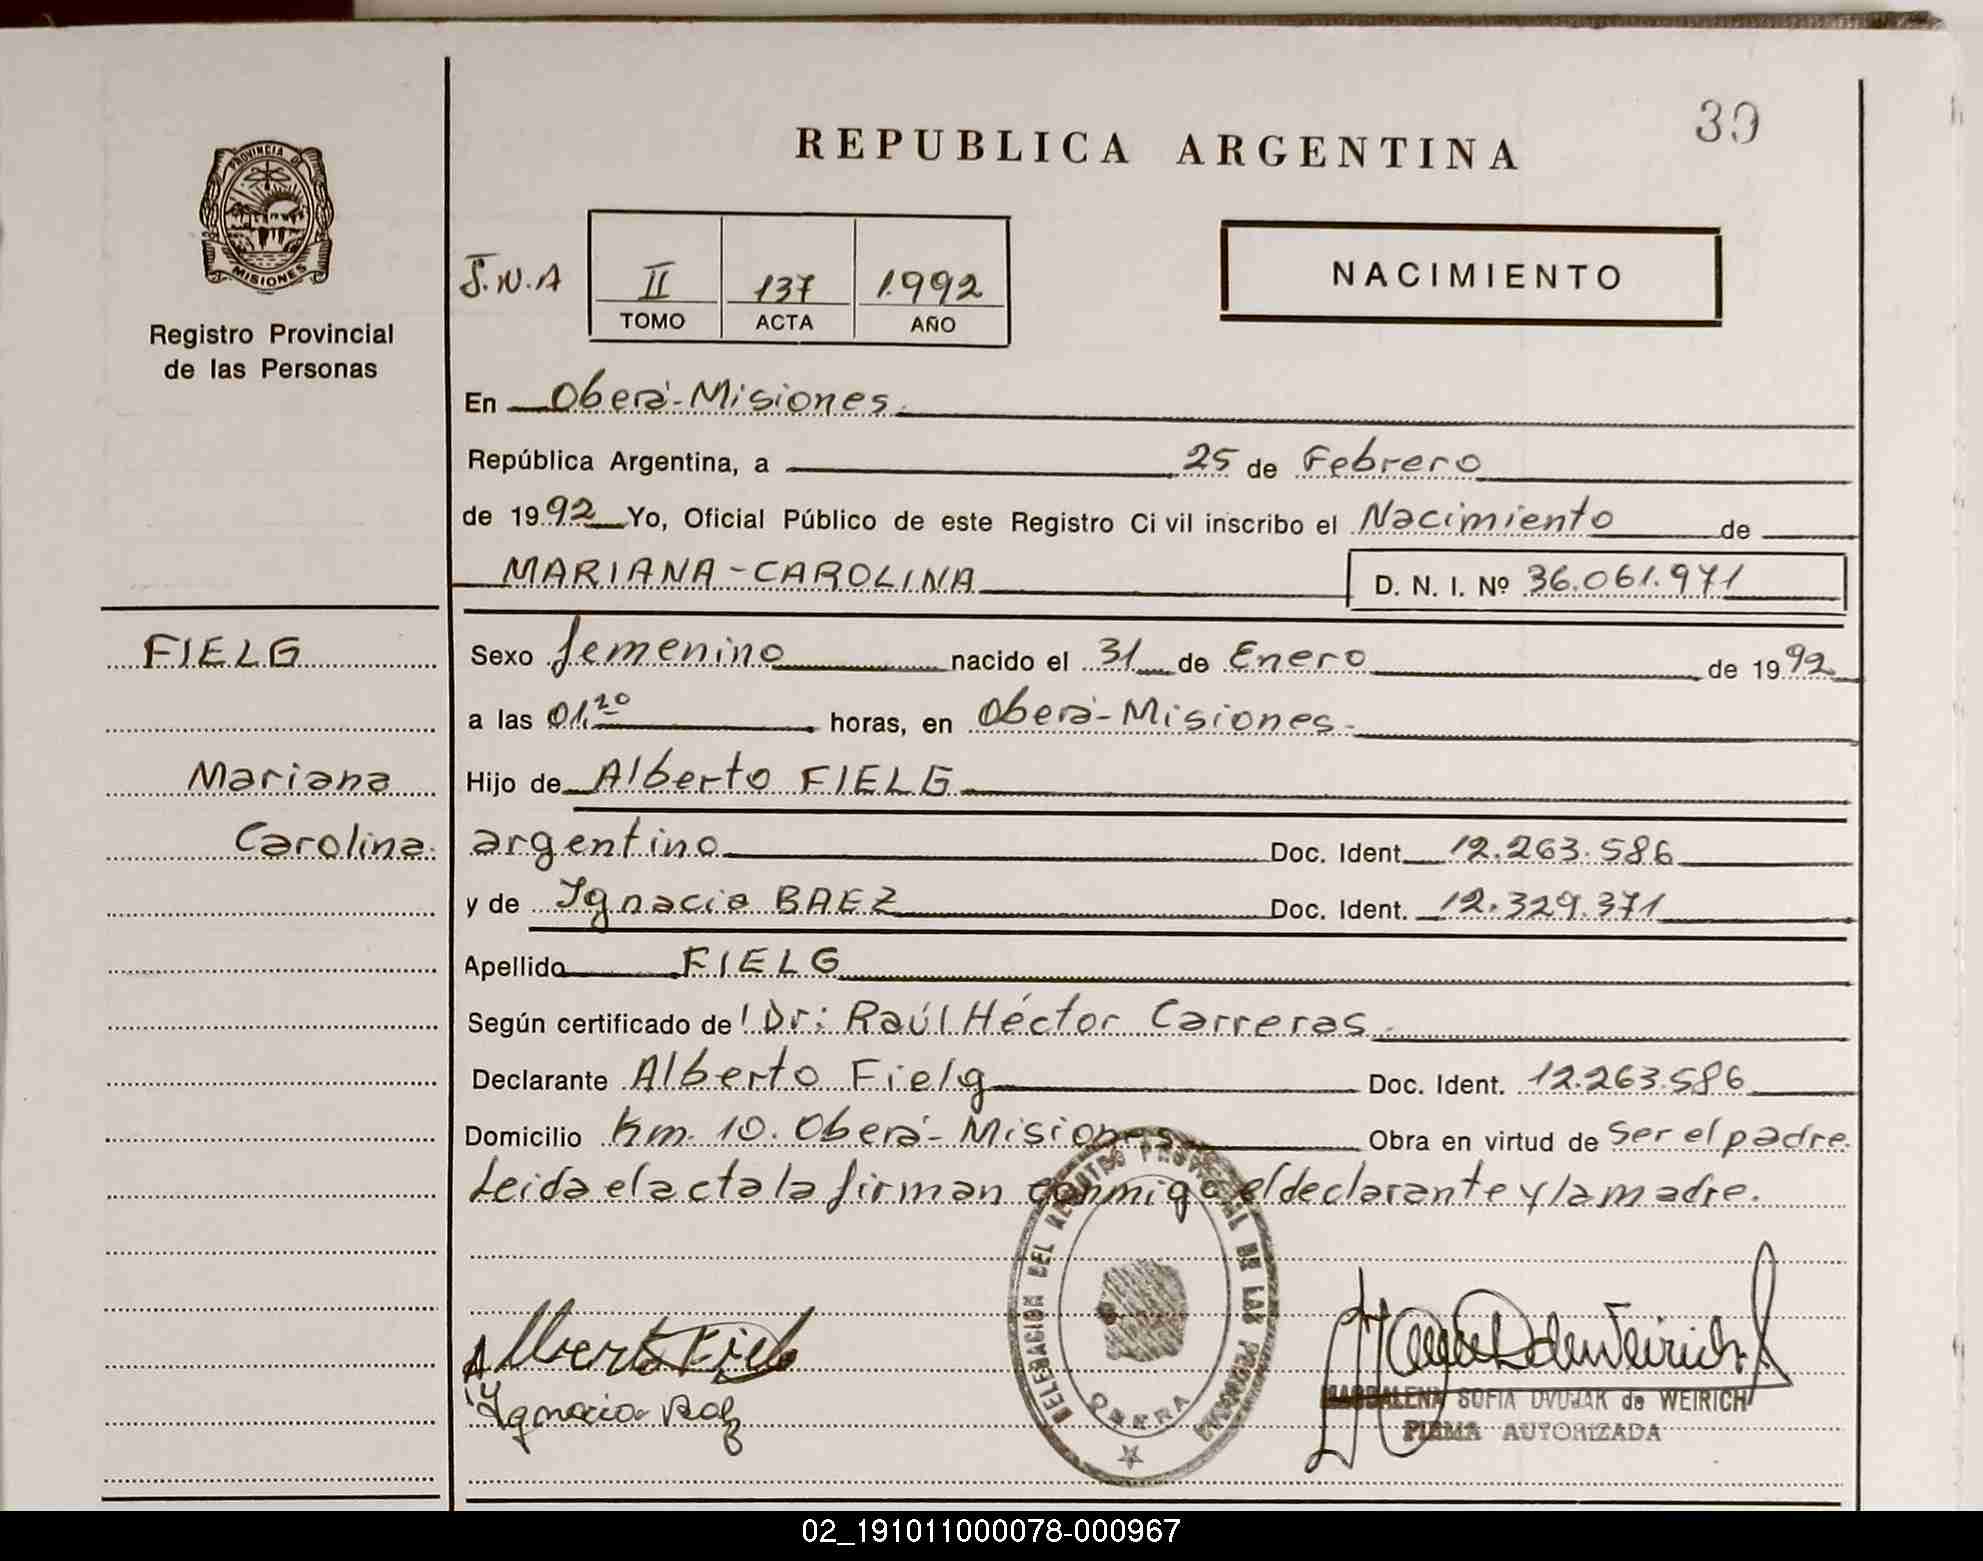 39
REPUBLICA ARGENTINA
PROVINCIA DE
MISIONES
Registro Provincial
de las Personas
J.N.A
II 137 1.992
TOMO ACTA AÑO
NACIMIENTO
En Oberá-Misiones.
República Argentina, a 25 de Febrero
de 1992 Yo, Oficial Público de este Registro Civil inscribo el Nacimiento de
MARIANA-CAROLINA D. N. I. Nº 36.061.971
FIELG
Mariana
Carolina.
Sexo femenino nacido el 31 de Enero de 1992
a las 01.20 horas, en Oberá-Misiones.
Hijo de Alberto FIELG
argentino Doc. Ident. 12.263.586
y de Ignacia BAEZ Doc. Ident. 12.329.371
Apellido FIELG
Según certificado de! Dr: Raúl Héctor Carreras.
Declarante Alberto Fielg Doc. Ident. 12.263.586
Domicilio Km. 10. Oberá-Misiones Obra en virtud de Ser el padre.
Leida el acta la firman conmigo el declarante y la madre.
DELEGACION DEL REGISTRO PROVINCIAL DE LAS PERSONAS
OBERA
Alberto Fielg
Ignacia Baez
MAGDALENA SOFIA DVUJAK de WEIRICH
FIRMA AUTORIZADA
02_191011000078-000967